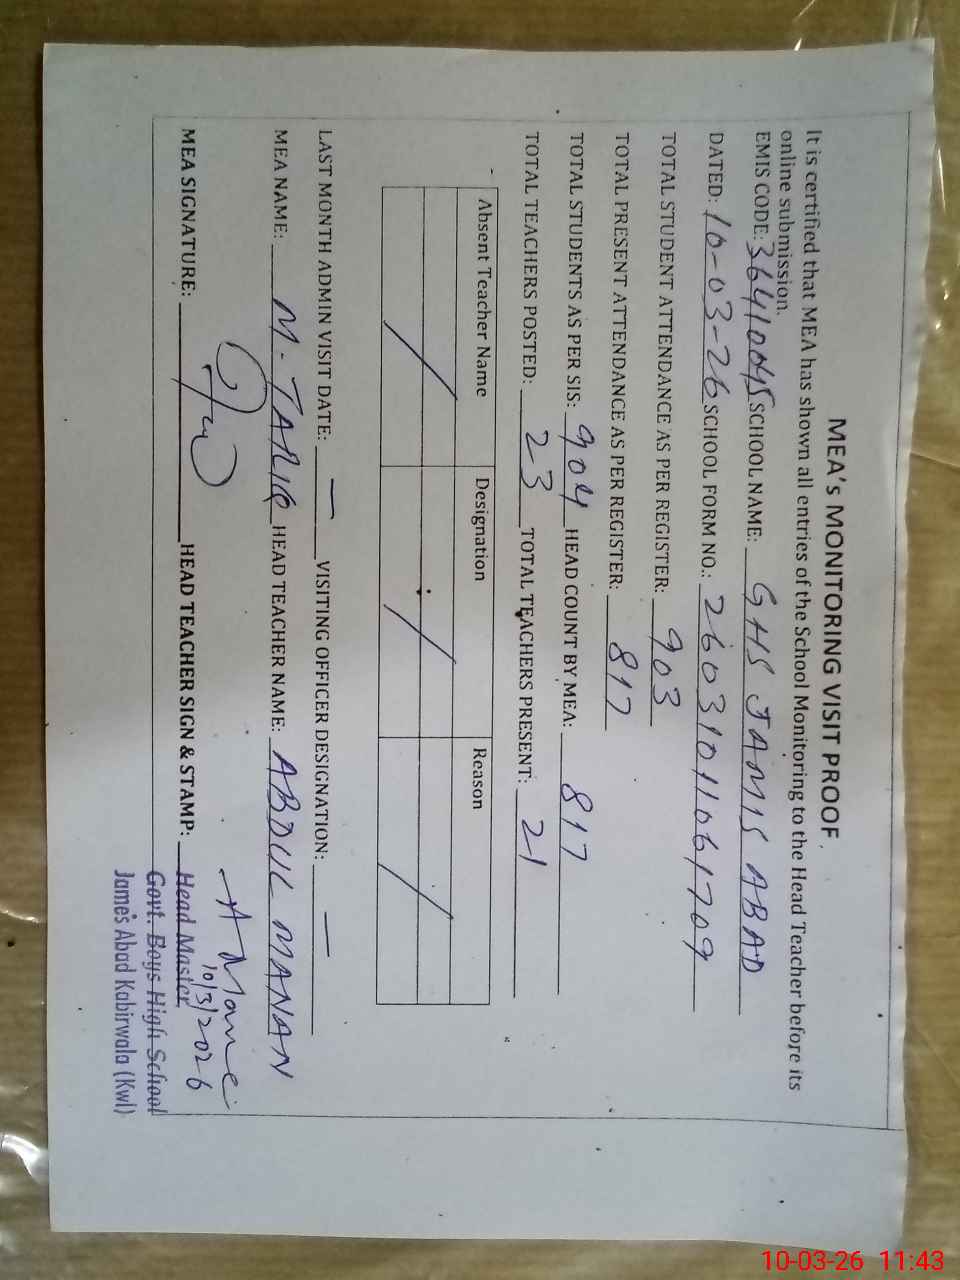 MEA's MONITORING VISIT PROOF
It is certified that MEA has shown all entries of the School Monitoring to the Head Teacher before its
online submission.
EMIS CODE: 36410045 SCHOOL NAME: GHS JAMIS ABAD
DATED: 10-03-26 SCHOOL FORM NO.: 26031011061709
TOTAL STUDENT ATTENDANCE AS PER REGISTER: 903
TOTAL PRESENT ATTENDANCE AS PER REGISTER: 817
TOTAL STUDENTS AS PER SIS: 904 HEAD COUNT BY MEA: 817
TOTAL TEACHERS POSTED: 23 TOTAL TEACHERS PRESENT: 21
Absent Teacher Name Designation Reason
LAST MONTH ADMIN VISIT DATE: — VISITING OFFICER DESIGNATION: —
MEA NAME: M. TARIQ HEAD TEACHER NAME: ABDUL MANAN
MEA SIGNATURE: HEAD TEACHER SIGN & STAMP:
10/3/2026
Head Master
Govt. Boys High School
James Abad Kabirwala (Kwl)
10-03-26 11:43